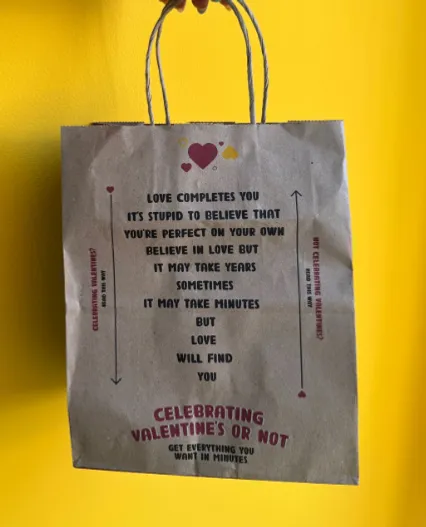 LOVE COMPLETES YOU
IT'S STUPID TO BELIEVE THAT
YOU'RE PERFECT ON YOUR OWN
BELIEVE IN LOVE BUT
IT MAY TAKE YEARS
SOMETIMES
IT MAY TAKE MINUTES
BUT
LOVE
WILL FIND
YOU
CELEBRATING VALENTINES?
READ THIS WAY
NOT CELEBRATING VALENTINES?
READ THIS WAY
CELEBRATING
VALENTINE'S OR NOT
GET EVERYTHING YOU
WANT IN MINUTES